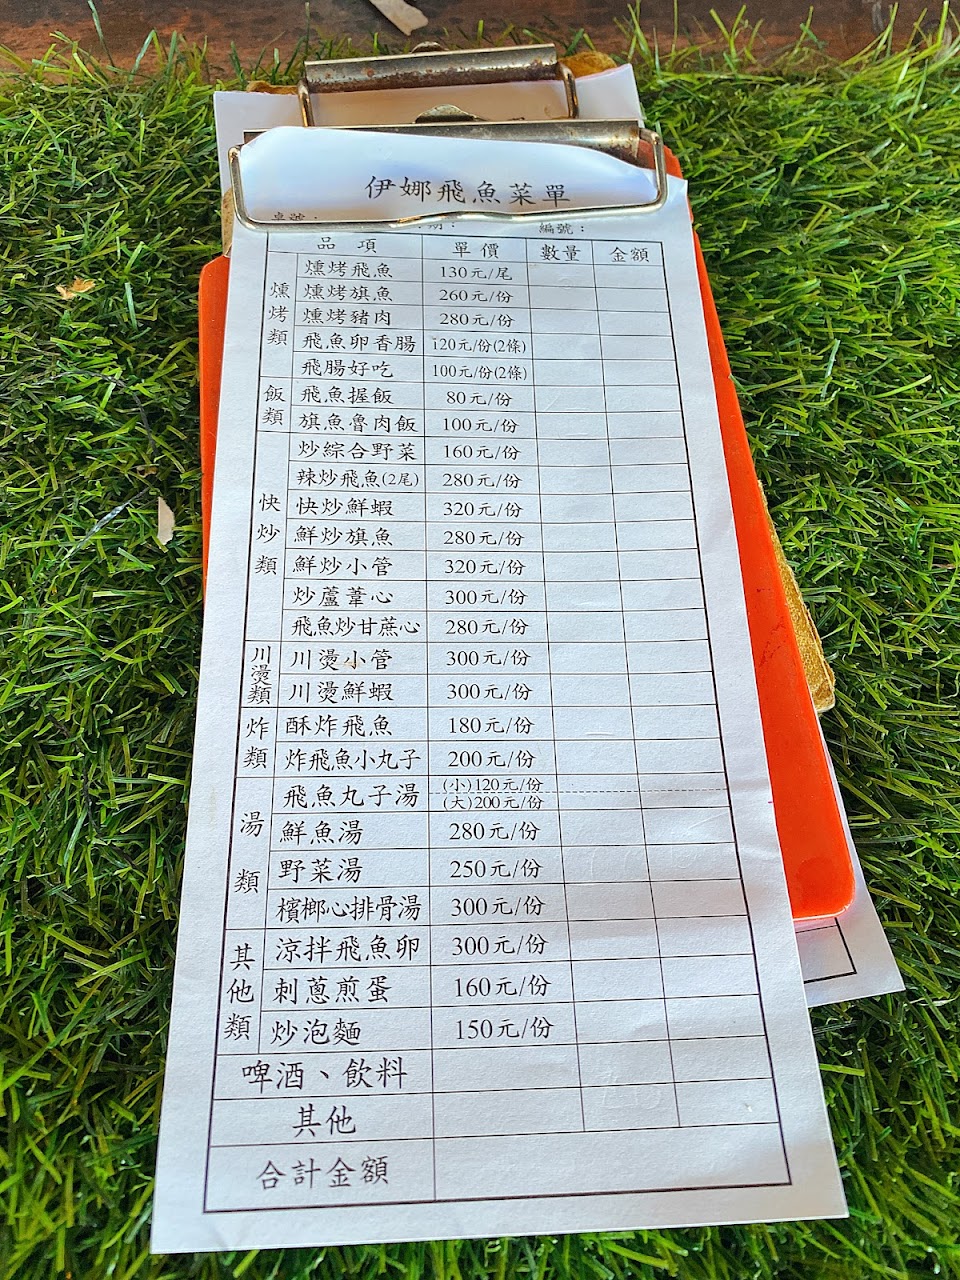 伊娜飛魚菜單
桌號：
期： 編號：
品項 單價 數量 金額
燻烤類
燻烤飛魚 130元/尾
燻烤旗魚 260元/份
燻烤豬肉 280元/份
飛魚卵香腸 120元/份(2條)
飛腸好吃 100元/份(2條)
飯類
飛魚握飯 80元/份
旗魚魯肉飯 100元/份
快炒類
炒綜合野菜 160元/份
辣炒飛魚(2尾) 280元/份
快炒鮮蝦 320元/份
鮮炒旗魚 280元/份
鮮炒小管 320元/份
炒蘆葦心 300元/份
飛魚炒甘蔗心 280元/份
川燙類
川燙小管 300元/份
川燙鮮蝦 300元/份
炸類
酥炸飛魚 180元/份
炸飛魚小丸子 200元/份
湯類
飛魚丸子湯 (小)120元/份
(大)200元/份
鮮魚湯 280元/份
野菜湯 250元/份
檳榔心排骨湯 300元/份
其他類
涼拌飛魚卵 300元/份
刺蔥煎蛋 160元/份
炒泡麵 150元/份
啤酒、飲料
其他
合計金額